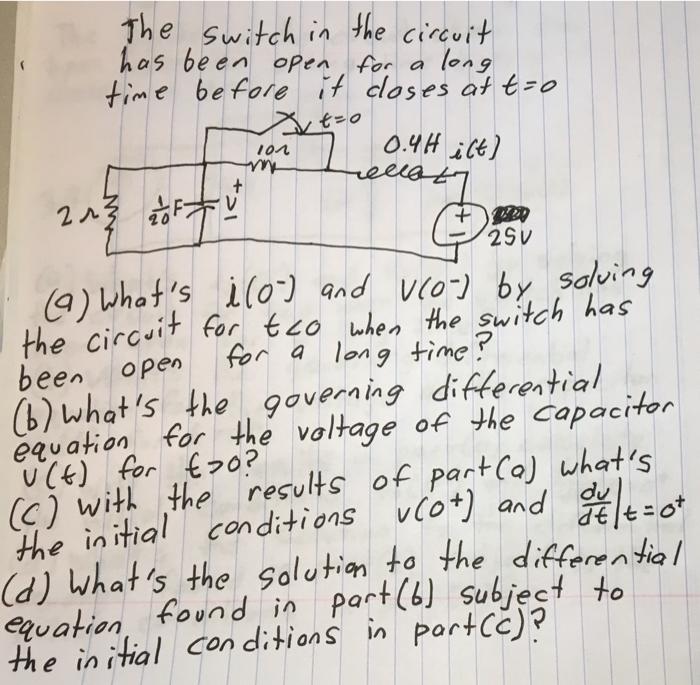 The switch in the circuit
has been open for a long
time before it closes at t=0
t=0
10Ω
0.4H i(t)
2Ω
1/20 F
+
V
-
+
-
25V
(a) What's i(0-) and v(0-) by solving
the circuit for t<0 when the switch has
been open for a long time?
(b) what's the governing differential
equation for the voltage of the capacitor
v(t) for t>0?
(c) With the results of part(a) what's
the initial conditions v(0+) and dv/dt|t=0+
(d) What's the solution to the differential
equation found in part(b) subject to
the initial conditions in part(c)?